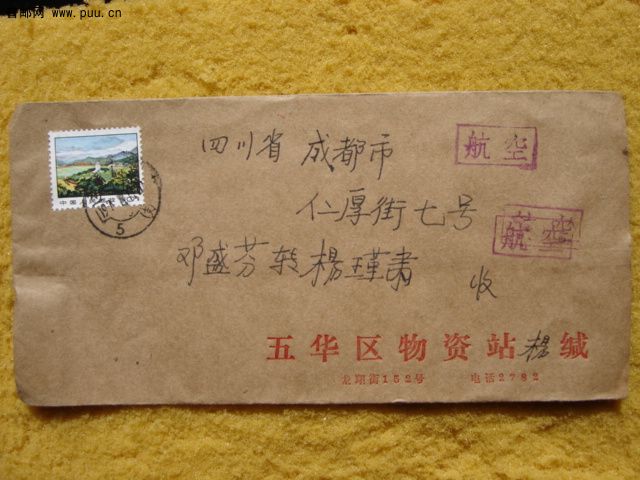 www.puu.cn
四川省 成都市
航空
仁厚街七号
航空
邓盛芬转楊瑾肃 收
五华区物资站楊缄
龙翔街152号 电话2782
中国人
5